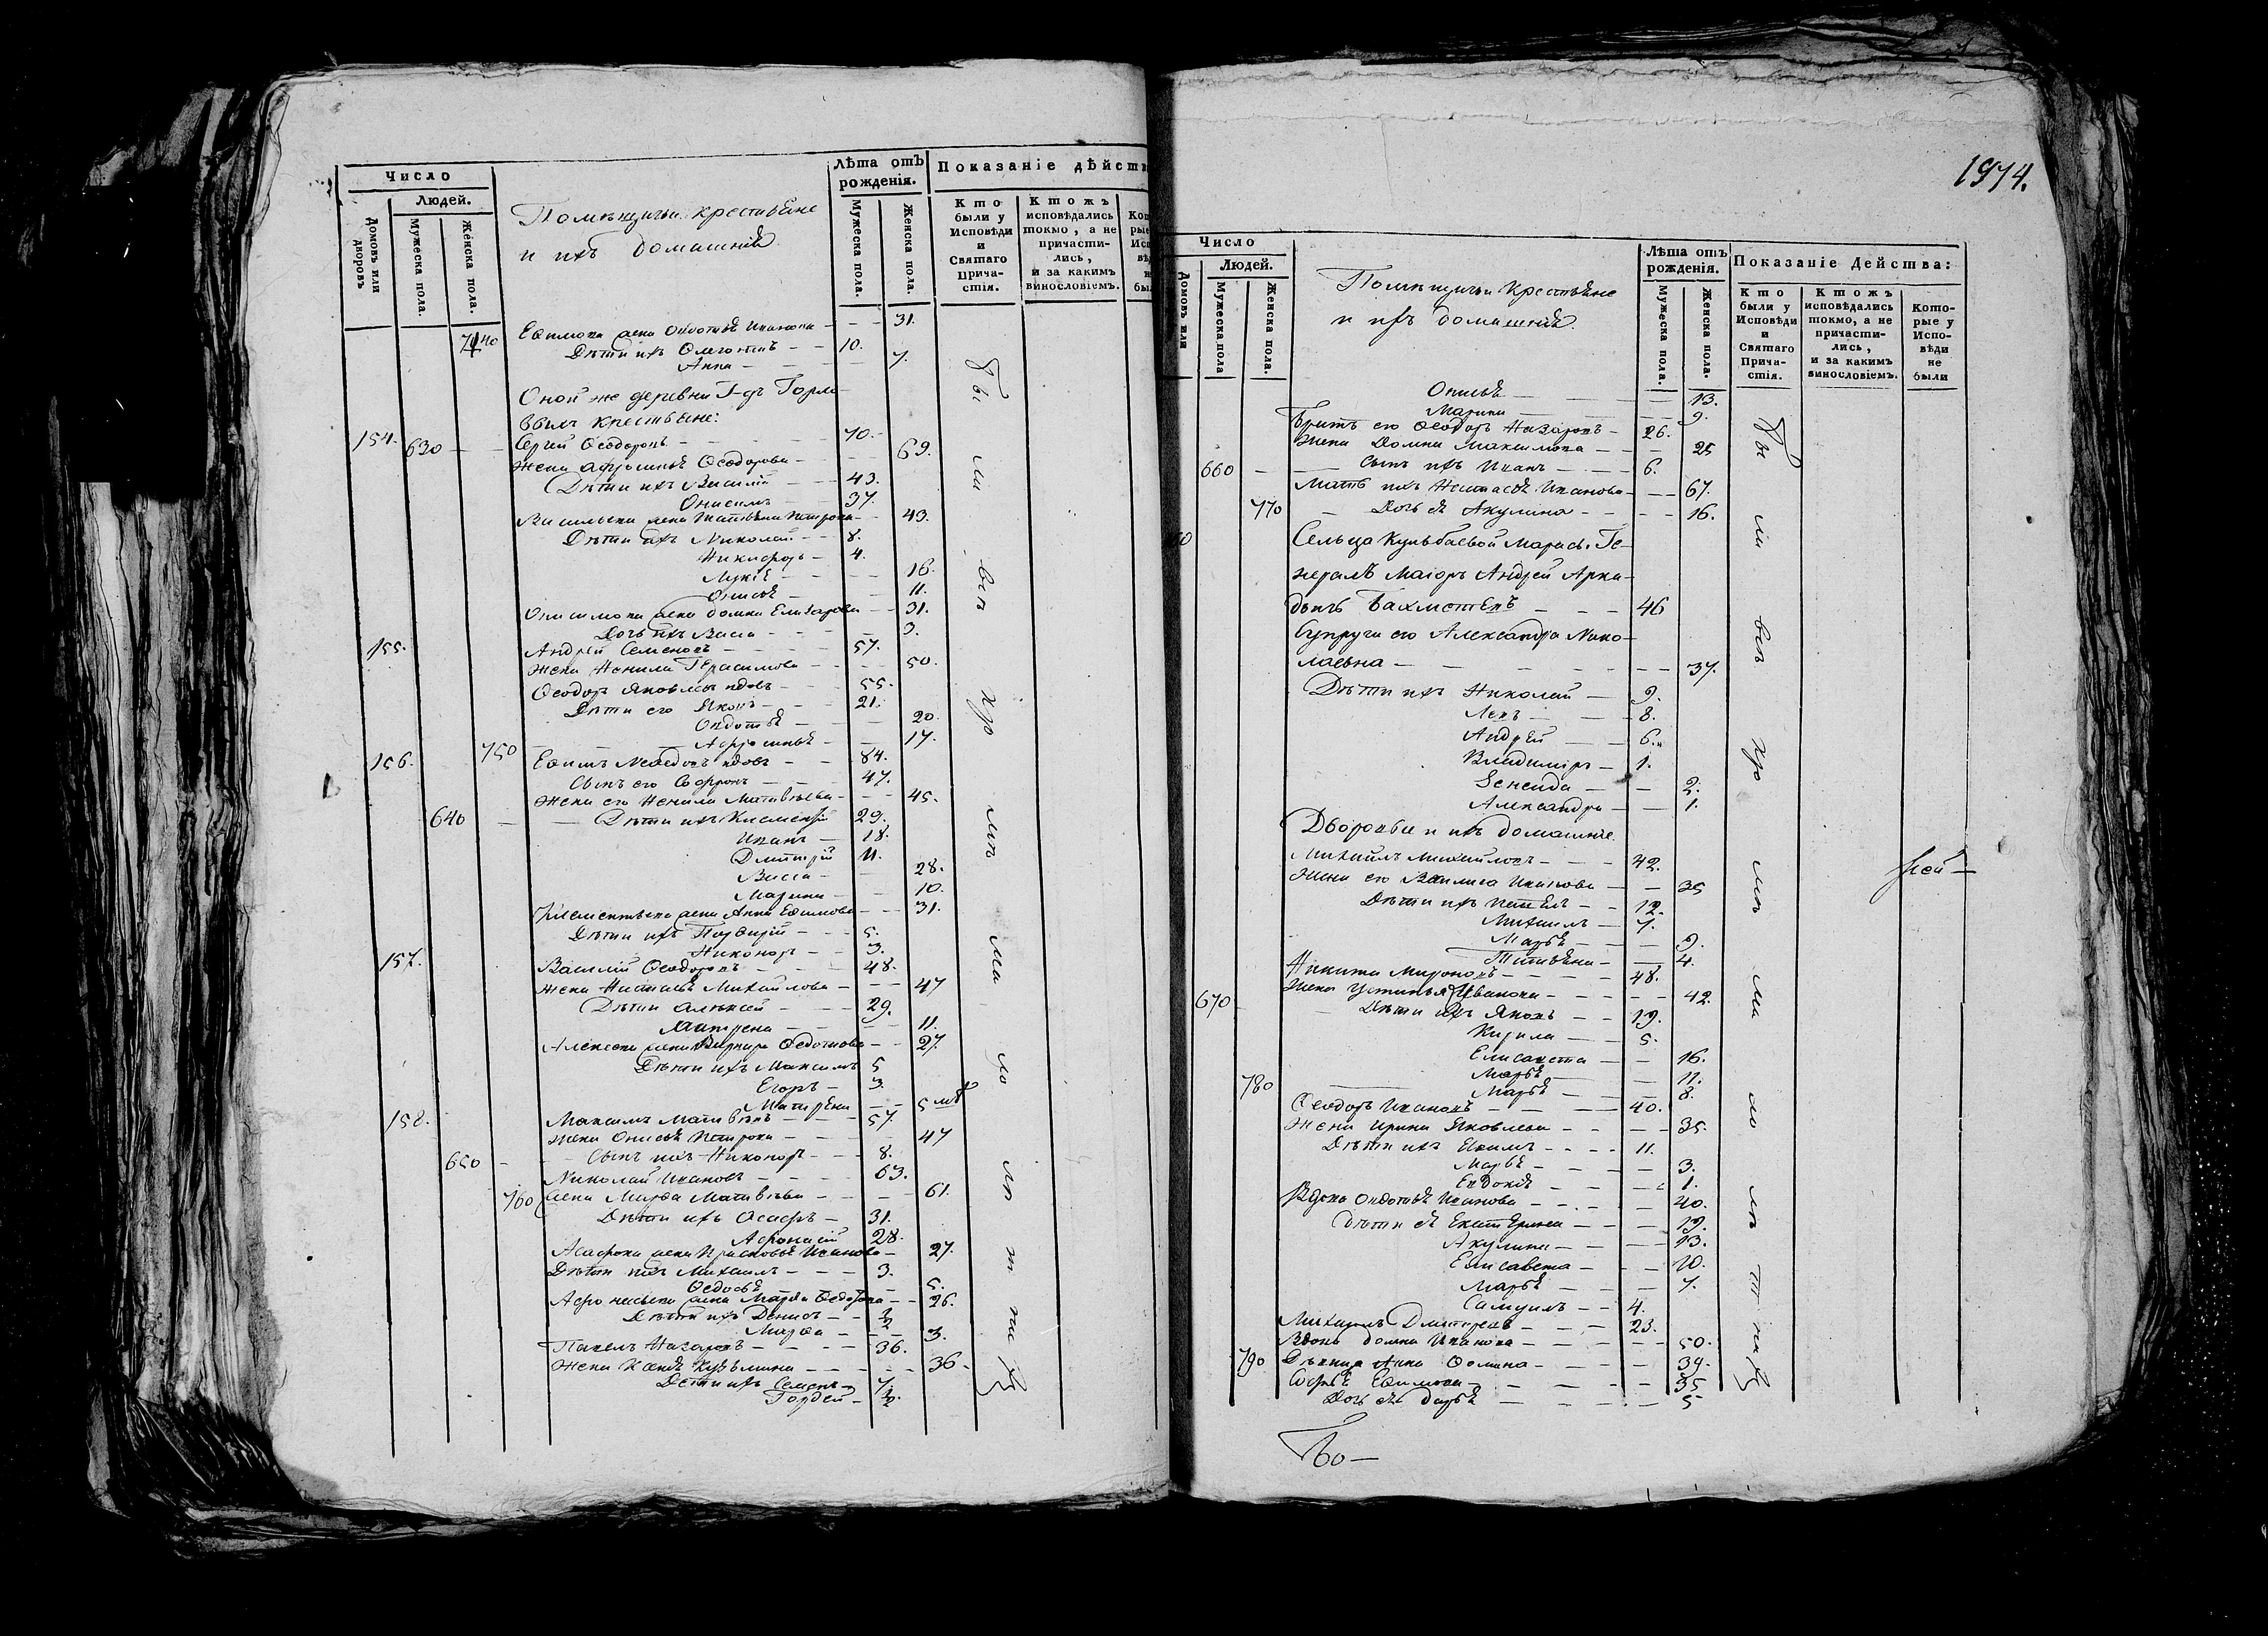 Число
Людей.
Домовъ или дворовъ
Мужеска пола.
Женска пола.
Помѣщичьи крестьяне
и ихъ домашніе
Лѣта отъ рожденія.
Мужеска пола.
Женска пола.
Показаніе дѣйств
Кто были у Исповѣди и Святаго Причастія.
Ктожъ исповѣдались токмо, а не причастились, и за какимъ винословіемъ.
740
Ефимова жена Овдотья Иванова — 31.
Дѣти ихъ — 10.
Анна — 7.
Оной же деревни Г-дъ Горло-
выхъ крестьяне:
154. 630 Сергей Ѳеодоровъ — 70.
Жена Афросинья Ѳеодорова — 69.
Дѣти ихъ Василій — 43.
Онисимъ — 37.
Васильева жена Татьяна Петрова — 43.
Дѣти ихъ Николай — 8.
Никифоръ — 4.
Лукія — 16.
Онисья — 11.
Онисимова жена Домна Елизарова — 31.
Дочь ихъ Васса — 3.
155. Андрей Семеновъ — 57.
Жена Ненила Герасимова — 50.
Ѳеодоръ Яковлевъ вдовъ — 55.
Дѣти его Яковъ — 21.
Овдотья — 20.
750 Афросинья — 17.
156. Ефимъ Меѳедовъ вдовъ — 84.
Сынъ его Софронъ — 47.
Жена его Ненила Матвѣева — 45.
640 Дѣти ихъ Климентій 29.
Иванъ — 18.
Дмитрій 11.
Васса — 28.
Марина — 10.
Климентьева жена Анна Ефимова — 31.
Дѣти ихъ Порфирій — 5.
Никоноръ — 3.
157. Василій Ѳеодоровъ — 48.
Жена Настасья Михайлова — 47
Дѣти Алексѣй — 29.
Матрена — 11.
Алексѣева жена Варвара Ѳедотова — 27.
Дѣти ихъ Максимъ 5
Егоръ — 3.
Матрена — 5 мѣ
158. Максимъ Матвѣевъ — 57.
Жена Онисья Петрова — 47
650 Сынъ ихъ Никоноръ — 8.
Николай Ивановъ — 63.
760 Жена Марѳа Матвѣева — 61.
Дѣти ихъ — 31.
Афонасій 28.
жена Прасковья Иванова — 27.
Дѣти ихъ Михаилъ — 3.
Ѳедосья — 5.
Афонасьева жена Марья Ѳедорова — 26.
Дѣти ихъ Денисъ — ½
Марѳа — 3.
Павелъ Назаровъ — 36.
Жена Ксенія Кузьмина — 36.
Дѣти ихъ Семенъ — 7.
Гордей — ½.
1974.
Число
Людей.
Домовъ или
Мужеска пола
Женска пола.
Помѣщичьи крестьяне
и ихъ домашніе.
Лѣта отъ рожденія.
Мужеска пола.
Женска пола.
Показаніе Действа:
Кто были у Исповѣди и Святаго Причастія.
Ктожъ исповѣдались токмо, а не причастились, и за какимъ винословіемъ.
Которые у Исповѣди не были
Онисья — 13.
Марина — 9.
Братъ его Ѳеодоръ Назаровъ — 26.
Жена Домна Максимова — 25
660 Сынъ ихъ Иванъ — 6.
Мать ихъ Настасья Иванова — 67.
770 Дочь ея Акулина — 16.
Сельца Кульбаевой Маракъ Ге-
нералъ Маіоръ Андрей Арка-
дьичъ Бахметевъ — 46
Супруга его Александра Нико-
лаевна — 37.
Дѣти ихъ Николай — 9.
Левъ — 8.
Андрей — 6.
Владиміръ — 1.
Зенеида — 2.
Александра — 1.
Дворовые и ихъ домашніе.
Михайлъ Михайловъ — 42.
Жена его Василиса Иванова — 35
Дѣти ихъ Павелъ — 12.
Михаилъ — 7.
Марья — 9.
Татьяна — 4.
Никита Мироновъ — 48.
670 Жена Устинья Иванова — 42.
Дѣти ихъ Яковъ — 19.
Кирила — 5.
Елисавета — 16.
Марья — 11.
780 Марья — 8.
Ѳеодоръ Ивановъ — 40.
Жена Ирина Яковлева — 35.
Дѣти ихъ Ефимъ — 11.
Марья — 3.
Евдокія — 1.
Вдова Овдотья Иванова — 40.
Дѣти ея Екатерина — 19.
Акулина — 13.
Елисавета — 10.
Марья — 7.
Самуилъ — 4.
Михаилъ Дмитревъ — 23.
Вдова Домна Иванова — 50.
790 Дѣвица Анна Ѳомина — 39.
Софья Ефимова — 35
Дочь ея Дарья — 5
Во—